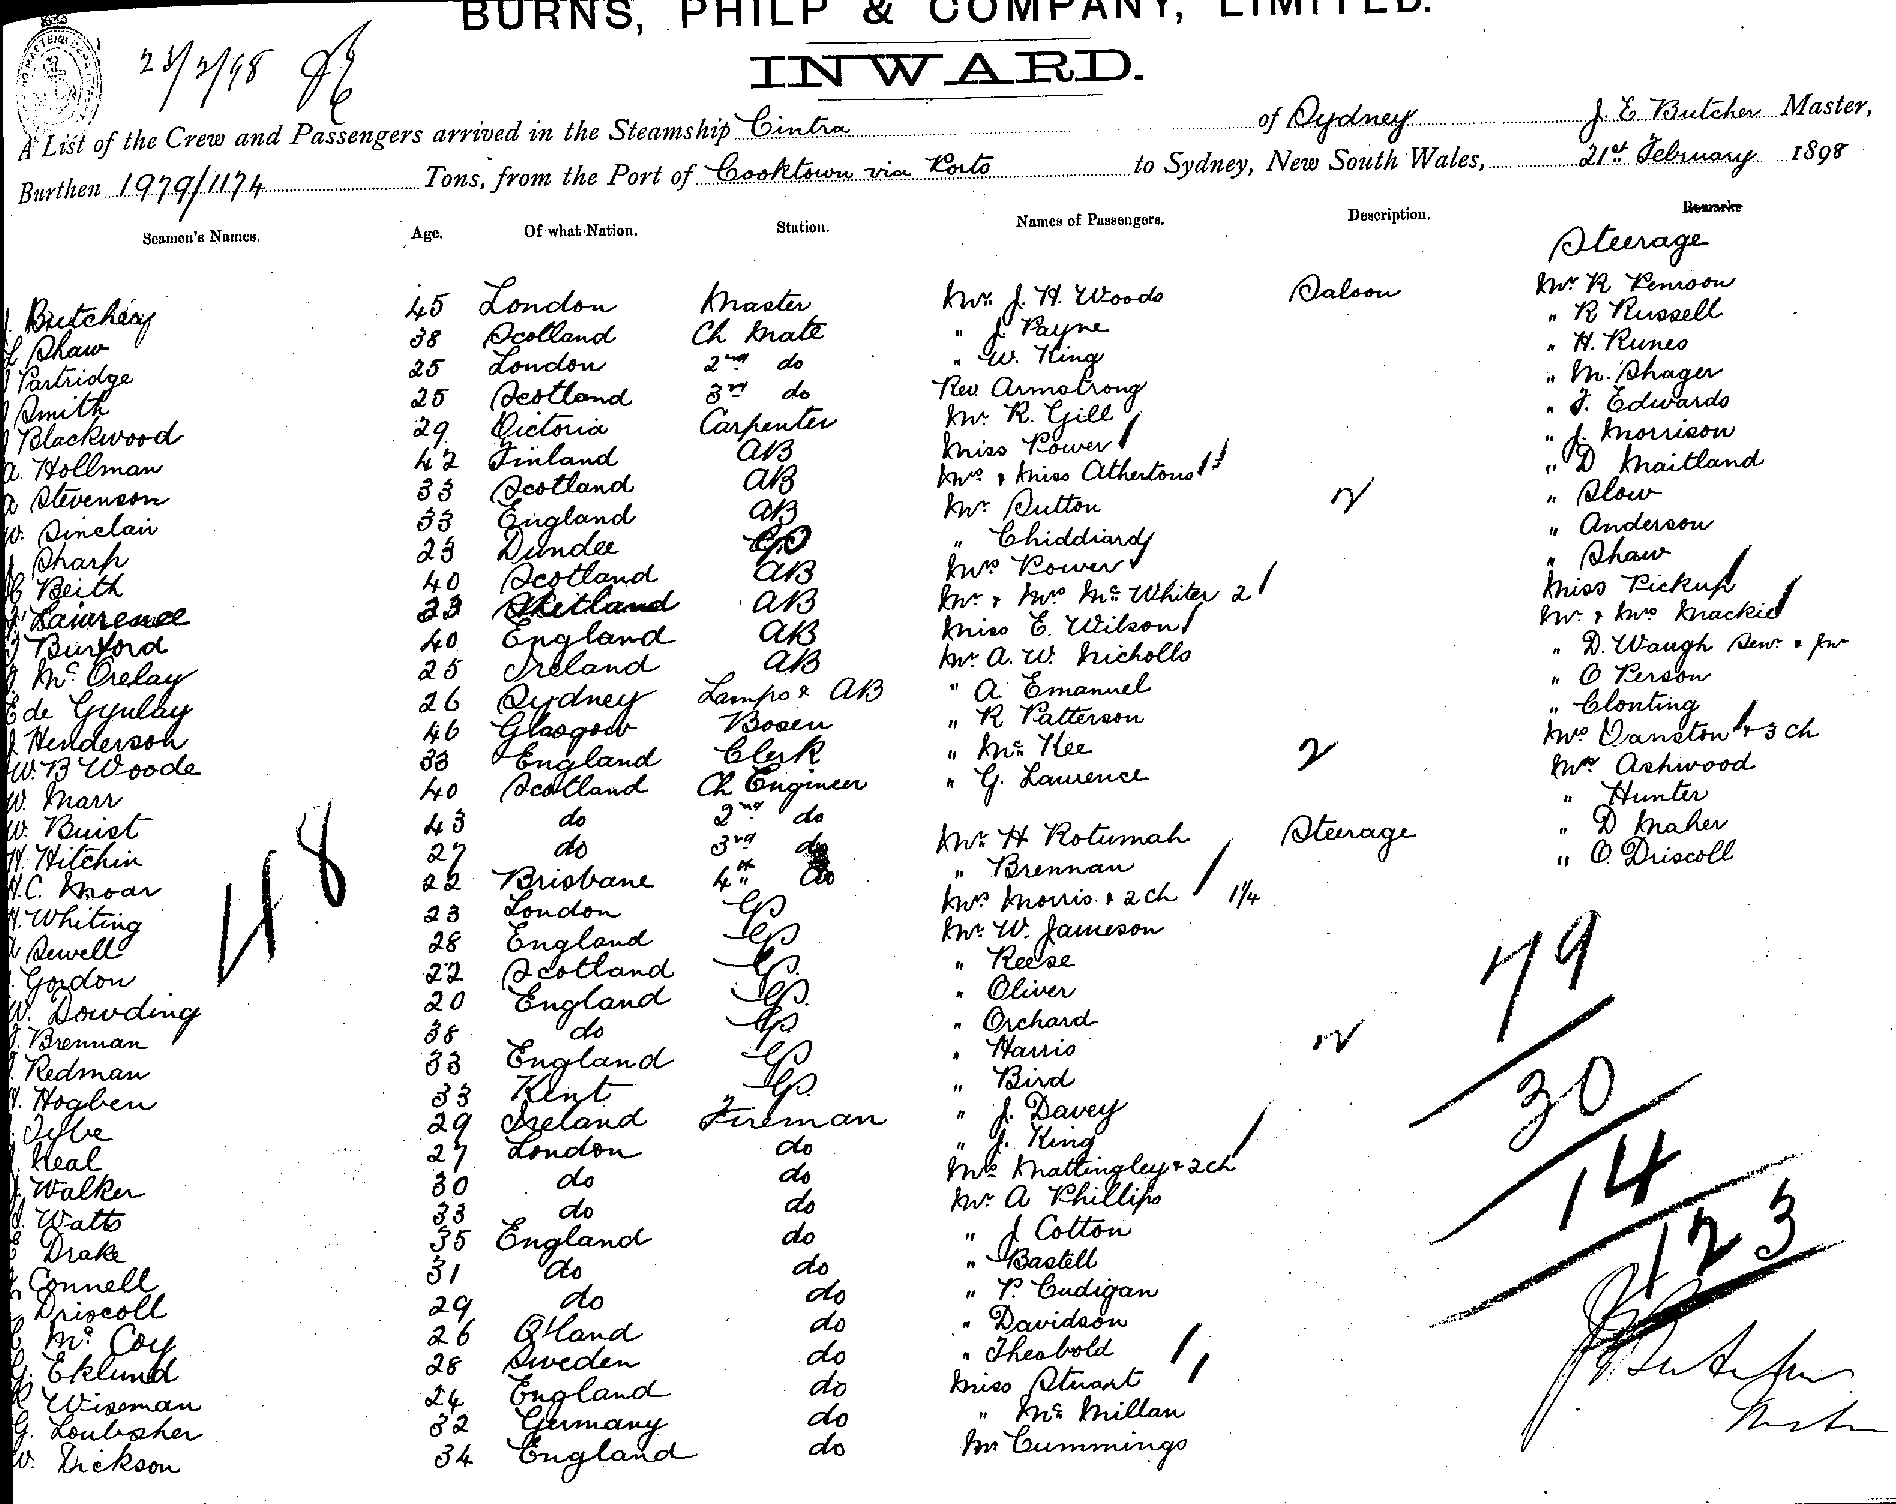 BURNS, PHILP & COMPANY, LIMITED.
23/2/98
INWARD.
A List of the Crew and Passengers arrived in the Steamship Cintra of Sydney J. E Butcher Master,
Burthen 1979/1174 Tons, from the Port of Cooktown via Ports to Sydney, New South Wales, 21st February 1898
Seamen's Names. Age. Of what Nation. Station. Names of Passengers. Description. Remarks
Steerage
Butcher 45 London Master Mr. J. H. Woods Saloon Mr R Penson
Shaw 38 Scotland Ch Mate " J. Payne " R Russell
Partridge 25 London 2nd do " W. King " H. Runes
Smith 25 Scotland 3rd do Rev. Armstrong " M. Shager
Blackwood 29 Victoria Carpenter Mr. R. Gill " J. Edwards
A. Hollman 42 Finland AB Miss Power " J. Morrison
A Stevenson 33 Scotland AB Mrs & Miss Athertons " D Maitland
W. Sinclair 33 England AB Mr Sutton 2 " Slow
Sharp 23 Dundee " Chiddiardy " Anderson
Beith 40 Scotland AB Mrs Power " Shaw
Lawrence 33 Shetland AB Mr & Mrs McWhiter 2 Miss Pickup
Burford 40 England AB Miss E. Wilson Mr & Mrs Mackie
Mc Orelay 25 Ireland AB Mr A. W. Nicholls " D. Waugh Senr & Jnr
E de Gyulay 26 Sydney Lamps & AB " A. Emanuel " O Person
J Henderson 46 Glasgow Bosen " R Patterson " Clonting
W. B Woode 33 England Clerk " McKee 2 Mrs Danston & 3 ch
W. Marr 40 Scotland Ch Engineer " G. Lawrence Mr Ashwood
W. Buist 43 do 2nd do " Hunter
H. Hitchin 27 do 3rd do Mr H Rotumah Steerage " D Maher
H. C. Moar 22 Brisbane 4th do " Brennan " O. Driscoll
H. Whiting 23 London GS Mrs Morris & 2 ch 1/4
Sewell 28 England GS Mr W. Jameson
Gordon 22 Scotland GS " Reese
W. Dowding 20 England GS " Oliver
Brennan 38 do GS " Orchard
Redman 33 England GS " Harris 2
H. Hogben 33 Kent GS " Bird
Tybe 29 Ireland Fireman " J. Davey
Neal 27 London do " J. King
J Walker 30 do do Mrs Mattingley & 2 ch
Watts 33 do do Mr A Phillips
Drake 35 England do " J Cotton
Connell 31 do do " Bastell
Driscoll 29 do do " P. Cudigan
Mc Coy 26 Q'land do " Davidson
G. Eklund 28 Sweden do " Theobold
R Wiseman 24 England do Miss Stuart
G. Loubsher 32 Germany do " McMillan
W. Dickson 34 England do Mr Cummings
48
79
30
14
123
J E Butcher
Master